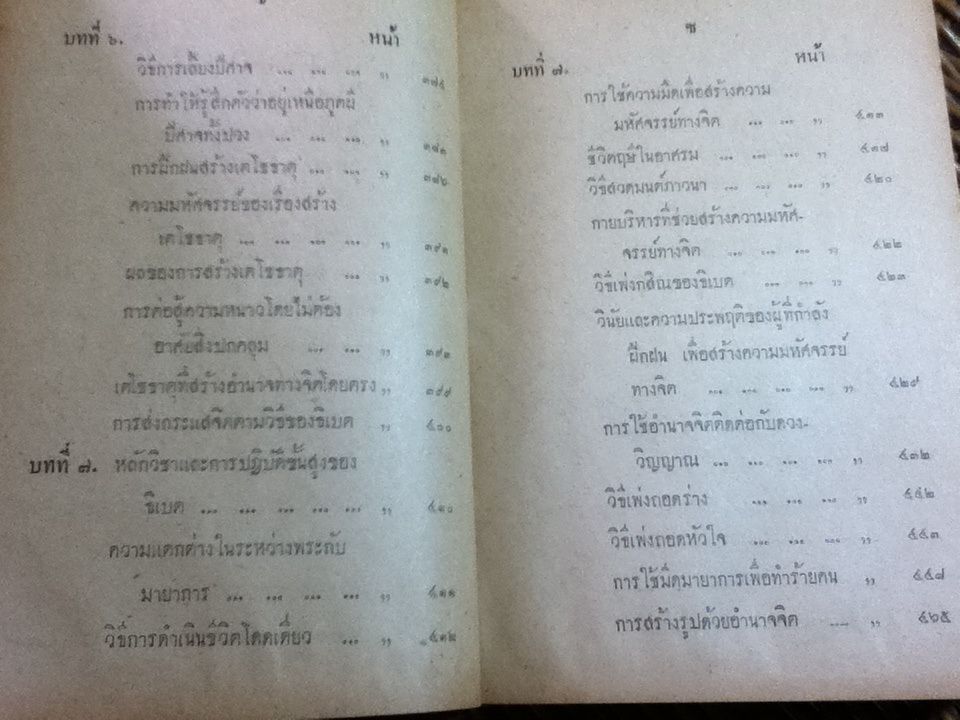 บทที่ ๖. หน้า
วิธีการเลี้ยงปีศาจ ... ... ... ,, ๓๘๕
การทำให้รู้สึกตัวว่าอยู่เหนือภูตผี
ปีศาจทั้งปวง ... ... ... ,, ๓๘๑
การฝึกฝนสร้างเตโชธาตุ ... ... ,, ๓๘๖
ความมหัศจรรย์ของเรื่องสร้าง
เตโชธาตุ ... ... ... ... ,, ๓๙๑
ผลของการสร้างเตโชธาตุ ... ,, ๓๙๒
การต่อสู้ความหนาวโดยไม่ต้อง
อาศัยสิ่งปกคลุม ... ... ,, ๓๙๓
เตโชธาตุที่สร้างอำนาจทางจิตโดยตรง ,, ๓๙๙
การส่งกระแสจิตตามวิธีของธิเบต ,, ๔๐๐
บทที่ ๗. หลักวิชาและการปฏิบัติชั้นสูงของ
ธิเบต ... ... ... ... ... ,, ๔๑๐
ความแตกต่างในระหว่างพระกับ
มายาการ ... ... ... ... ,, ๔๑๑
วิธีการดำเนินชีวิตโดดเดี่ยว ... ,, ๔๑๒
ซ
บทที่ ๗. หน้า
การใช้ความมืดเพื่อสร้างความ
มหัศจรรย์ทางจิต ... ... ,, ๔๑๓
ชีวิตฤษีในอาศรม ... ... ... ,, ๔๑๗
วิธีสวดมนต์ภาวนา ... ... ... ,, ๔๒๐
กายบริหารที่ช่วยสร้างความมหัศ-
จรรย์ทางจิต ... ... ... ,, ๔๒๒
วิธีเพ่งกสิณของธิเบต ... ... ,, ๔๒๓
วินัยและความประพฤติของผู้ที่กำลัง
ฝึกฝน เพื่อสร้างความมหัศจรรย์
ทางจิต ... ... ... ... ,, ๔๒๙
การใช้อำนาจจิตติดต่อกับดวง-
วิญญาณ ... ... ... ... ,, ๔๓๒
วิธีเพ่งถอดร่าง ... ... ... ,, ๔๔๒
วิธีเพ่งถอดหัวใจ ... ... ... ,, ๔๔๓
การใช้มีดมายาการเพื่อทำร้ายคน ,, ๔๔๗
การสร้างรูปด้วยอำนาจจิต ... ,, ๔๖๕